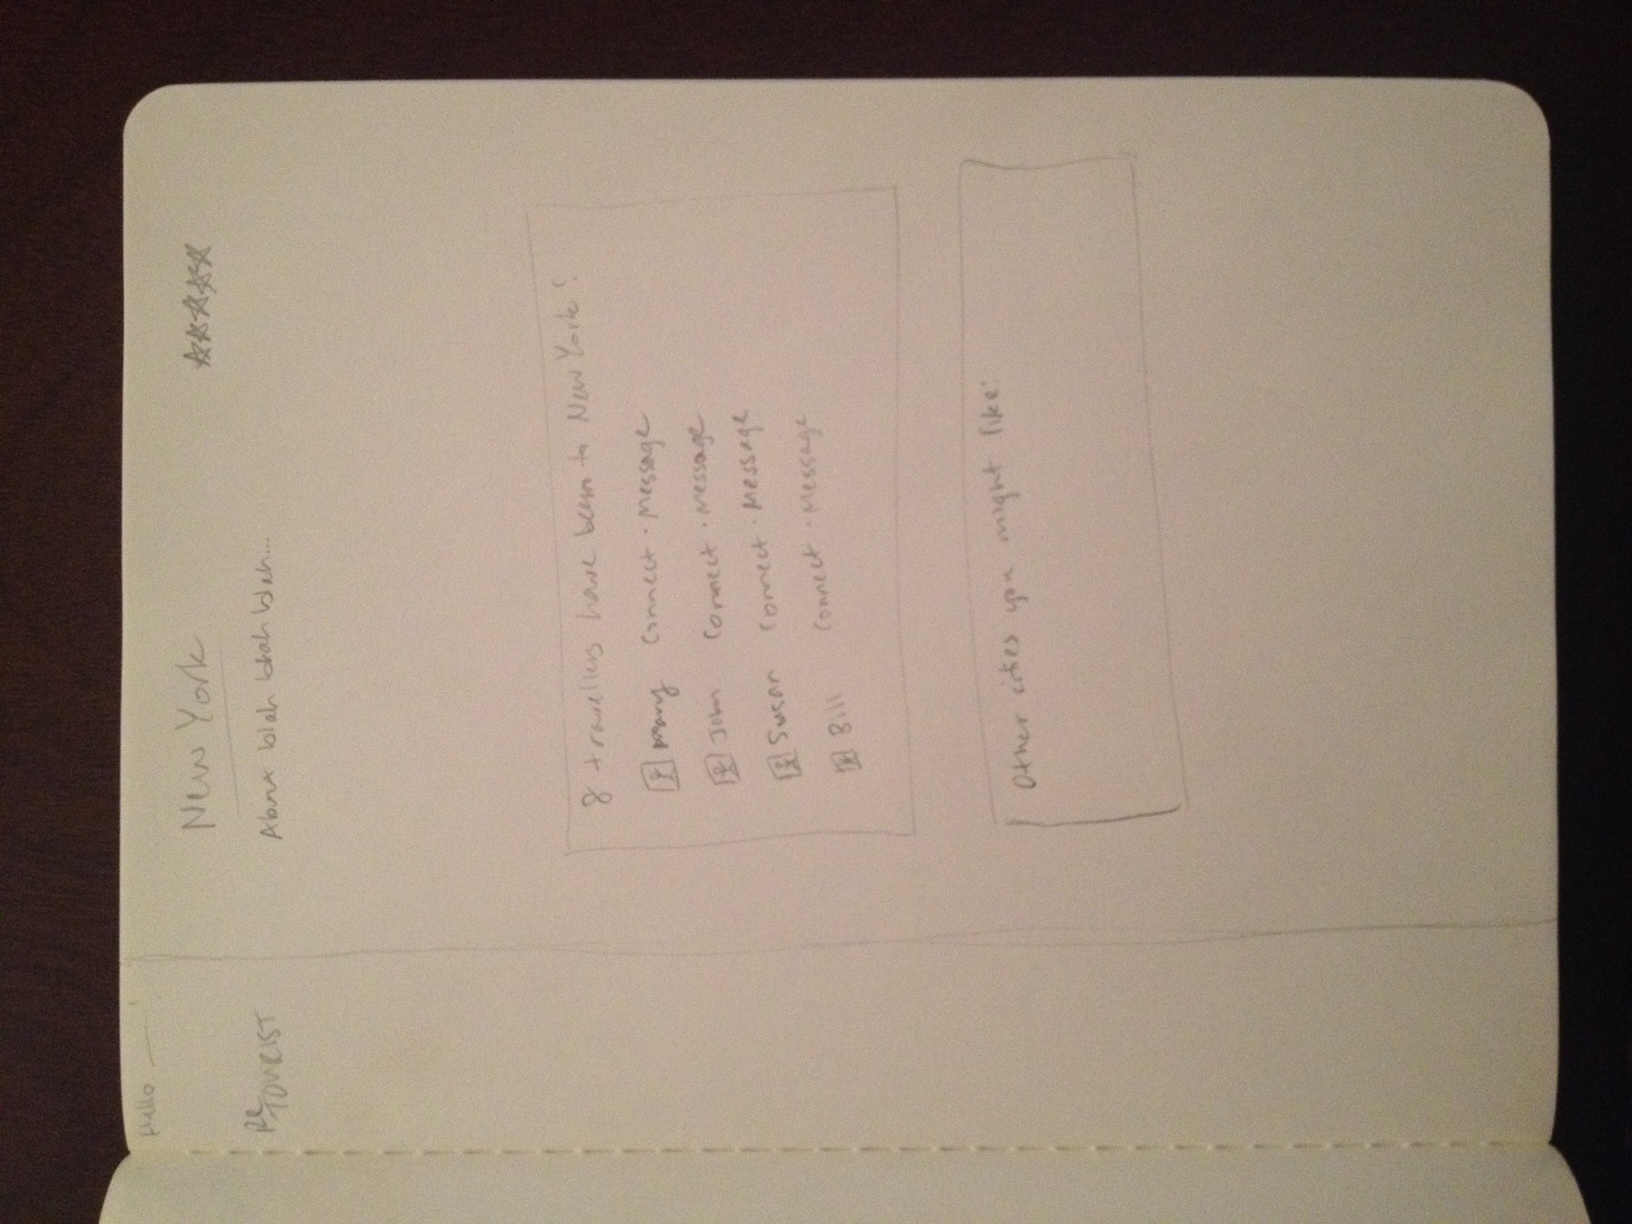 Hello ——!
Re
TOURIST
New York
About blah blah blah...
8 travellers have been to New York!
Mary Connect · Message
John Connect · Message
Susan Connect · Message
Bill Connect · Message
Other cities you might like: